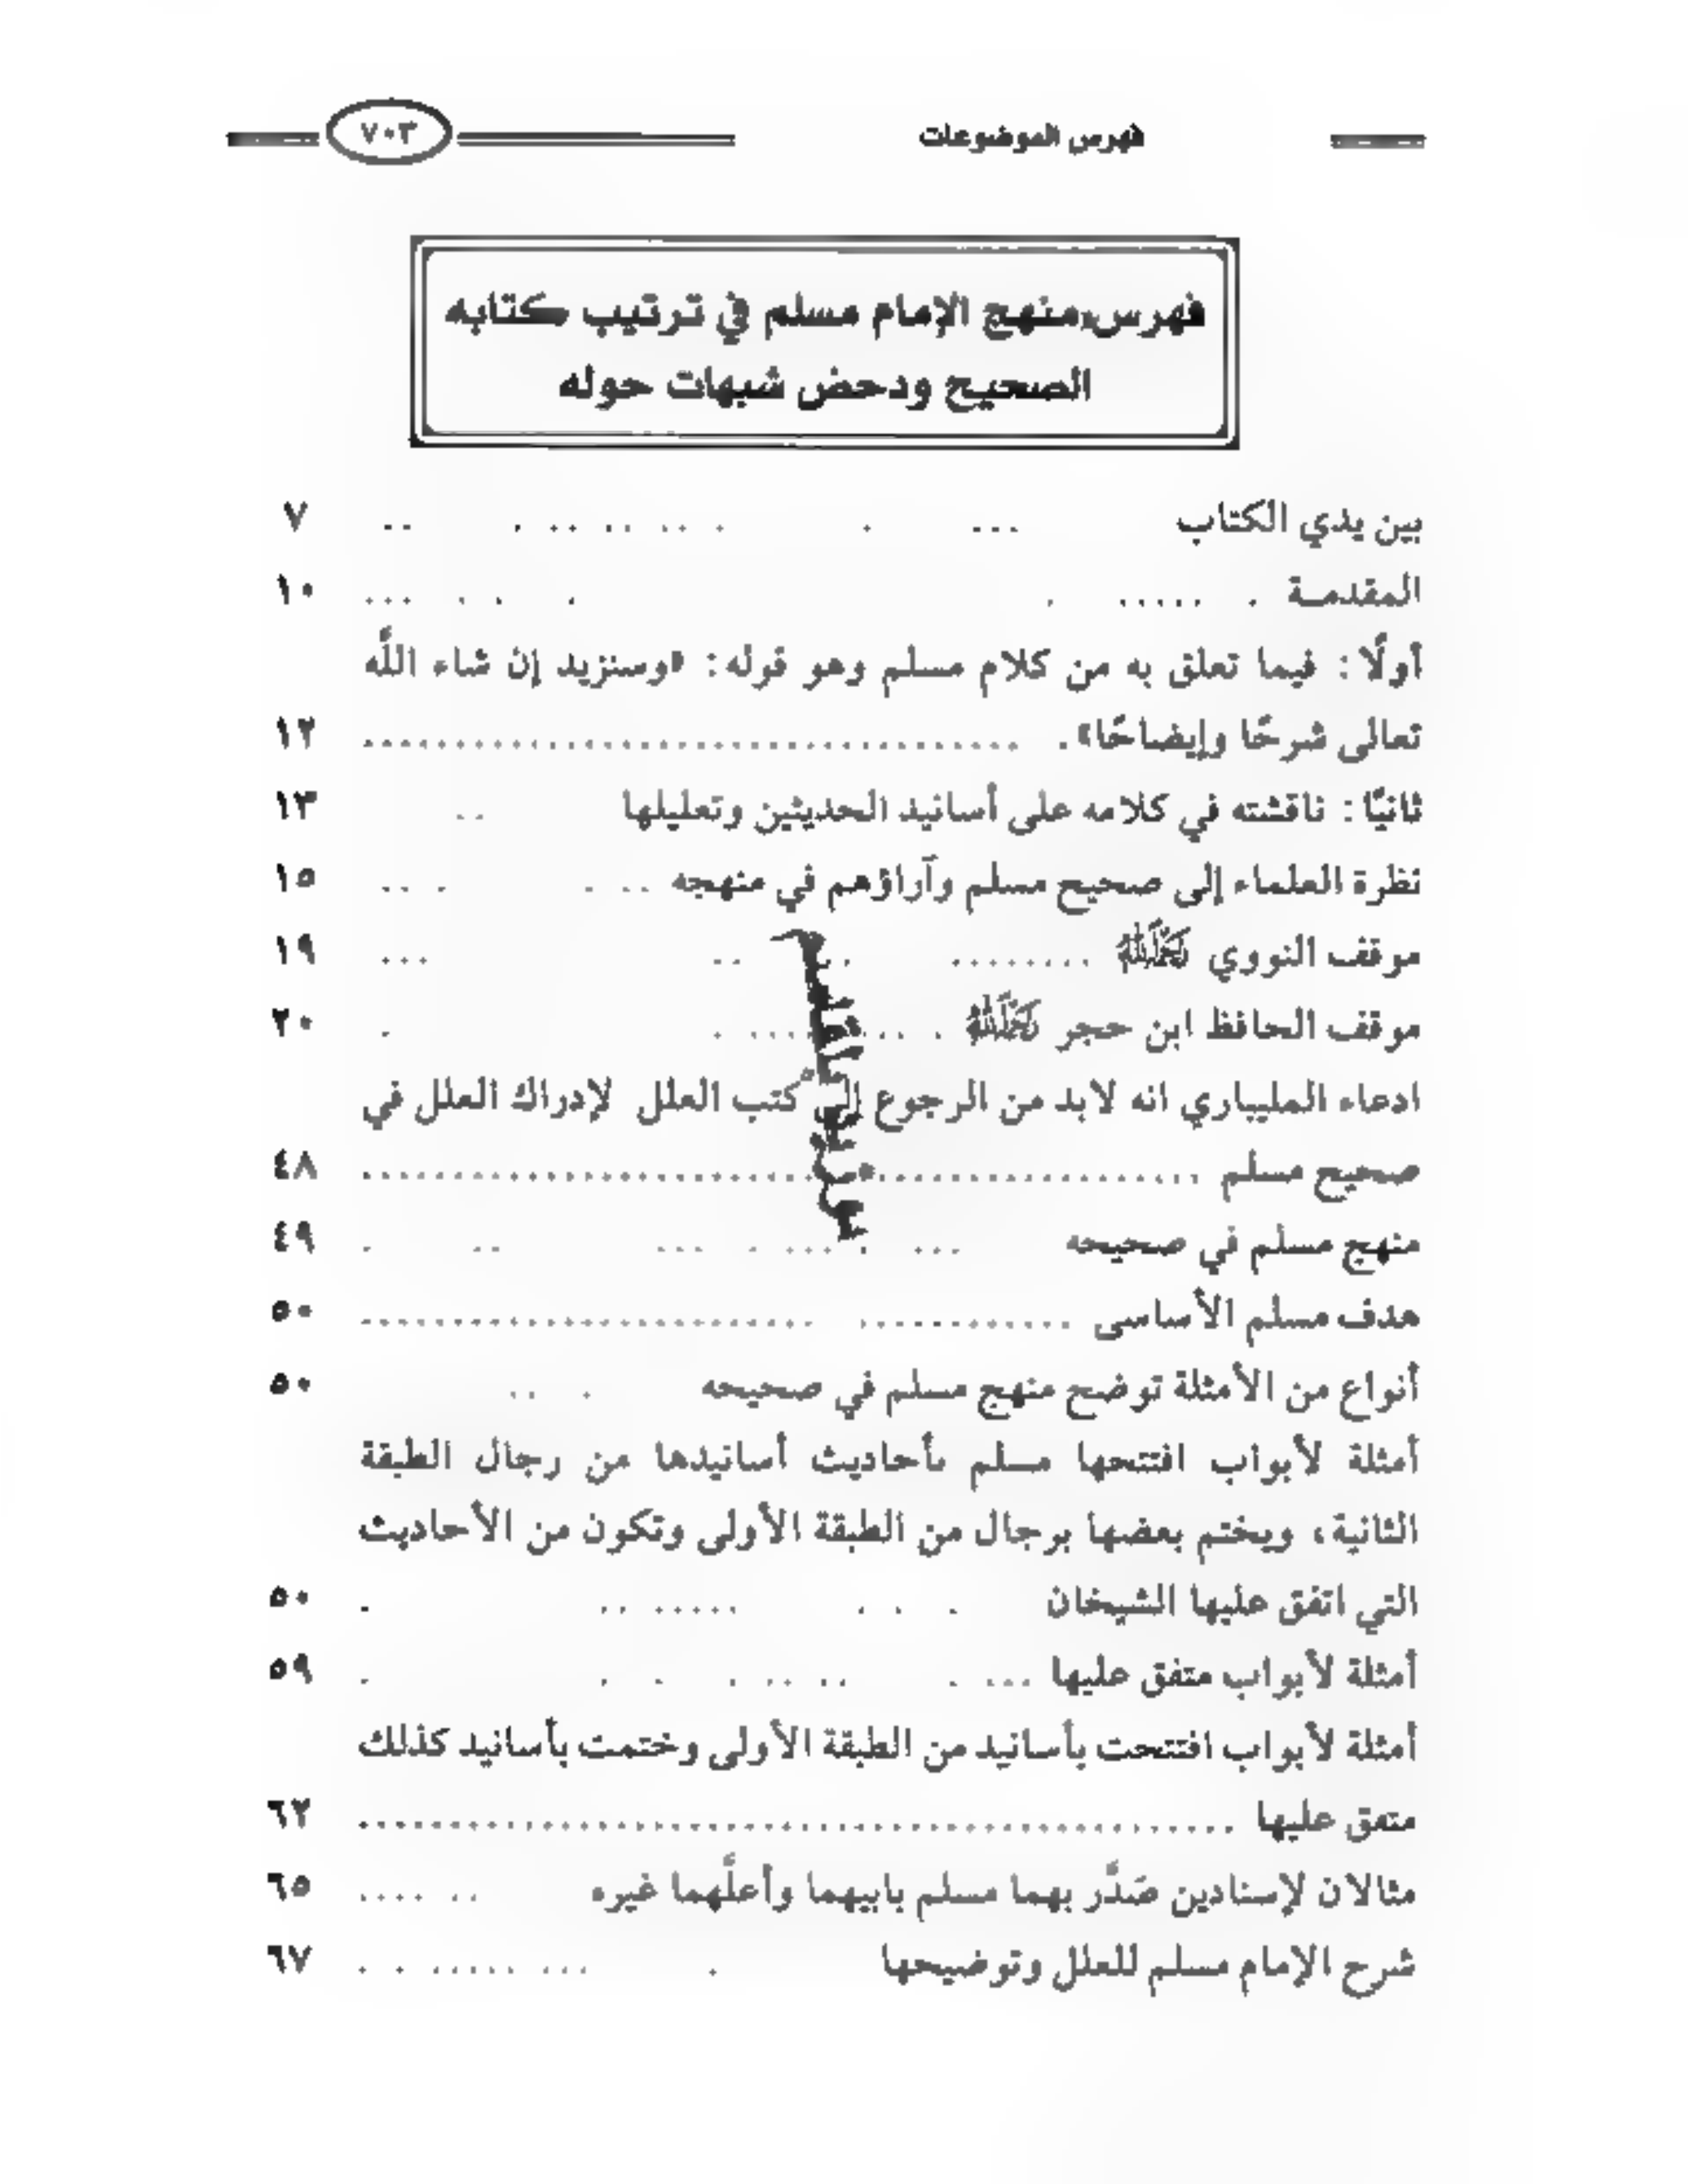 فهرس الموضوعات
٧٠٣
فهرس منهج الإمام مسلم في ترتيب كتابه
الصحيح ودحض شبهات حوله
بين يدي الكتاب ٧
المقدمة ١٠
أولًا: فيما تعلق به من كلام مسلم وهو قوله: «وسنزيد إن شاء اللَّه
تعالى شرحًا وإيضاحًا». ١٢
ثانيًا: ناقشته في كلامه على أسانيد الحديثين وتعليلها ١٣
نظرة العلماء إلى صحيح مسلم وآراؤهم في منهجه ١٥
موقف النووي رَحِمَهُ اللَّهُ ١٩
موقف الحافظ ابن حجر رَحِمَهُ اللَّهُ ٢٠
ادعاء المليباري انه لابد من الرجوع إلى كتب العلل لإدراك العلل في
صحيح مسلم ٤٨
منهج مسلم في صحيحه ٤٩
هدف مسلم الأساسى ٥٠
أنواع من الأمثلة توضح منهج مسلم في صحيحه ٥٠
أمثلة لأبواب افتتحها مسلم بأحاديث أسانيدها من رجال الطبقة
الثانية، ويختم بعضها برجال من الطبقة الأولى وتكون من الأحاديث
التي اتفق عليها الشيخان ٥٠
أمثلة لأبواب متفق عليها ٥٩
أمثلة لأبواب افتتحت بأسانيد من الطبقة الأولى وختمت بأسانيد كذلك
متفق عليها ٦٢
مثالان لإسنادين صَدَّر بهما مسلم بابيهما وأعلَّهما غيره ٦٥
شرح الإمام مسلم للعلل وتوضيحها ٦٧